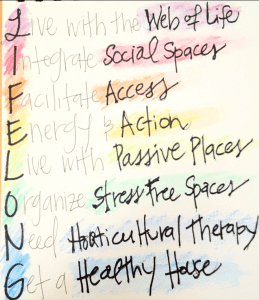 Live with the Web of Life
Integrate Social Spaces
Facilitate Access
Energy & Action
Live with Passive Places
Organize Stress Free Spaces
Need Horticultural Therapy
Get a Healthy House